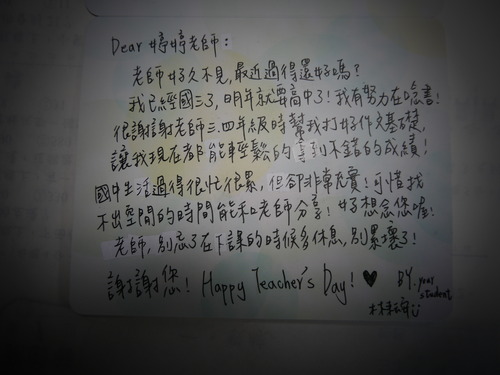 Dear 婷婷老師:
老師好久不見,最近過得還好嗎?
我已經國三了,明年就要高中了!我有努力在唸書!
很謝謝老師三.四年級時幫我打好作文基礎,
讓我現在都能輕鬆的拿到不錯的成績!
國中生活過得很忙很累,但卻非常充實!可惜找
不出空閒的時間能和老師分享!好想念您喔!
老師,別忘了在下課的時候多休息,別累壞了!
謝謝您! Happy Teacher's Day! ♥ BY. your
student
林